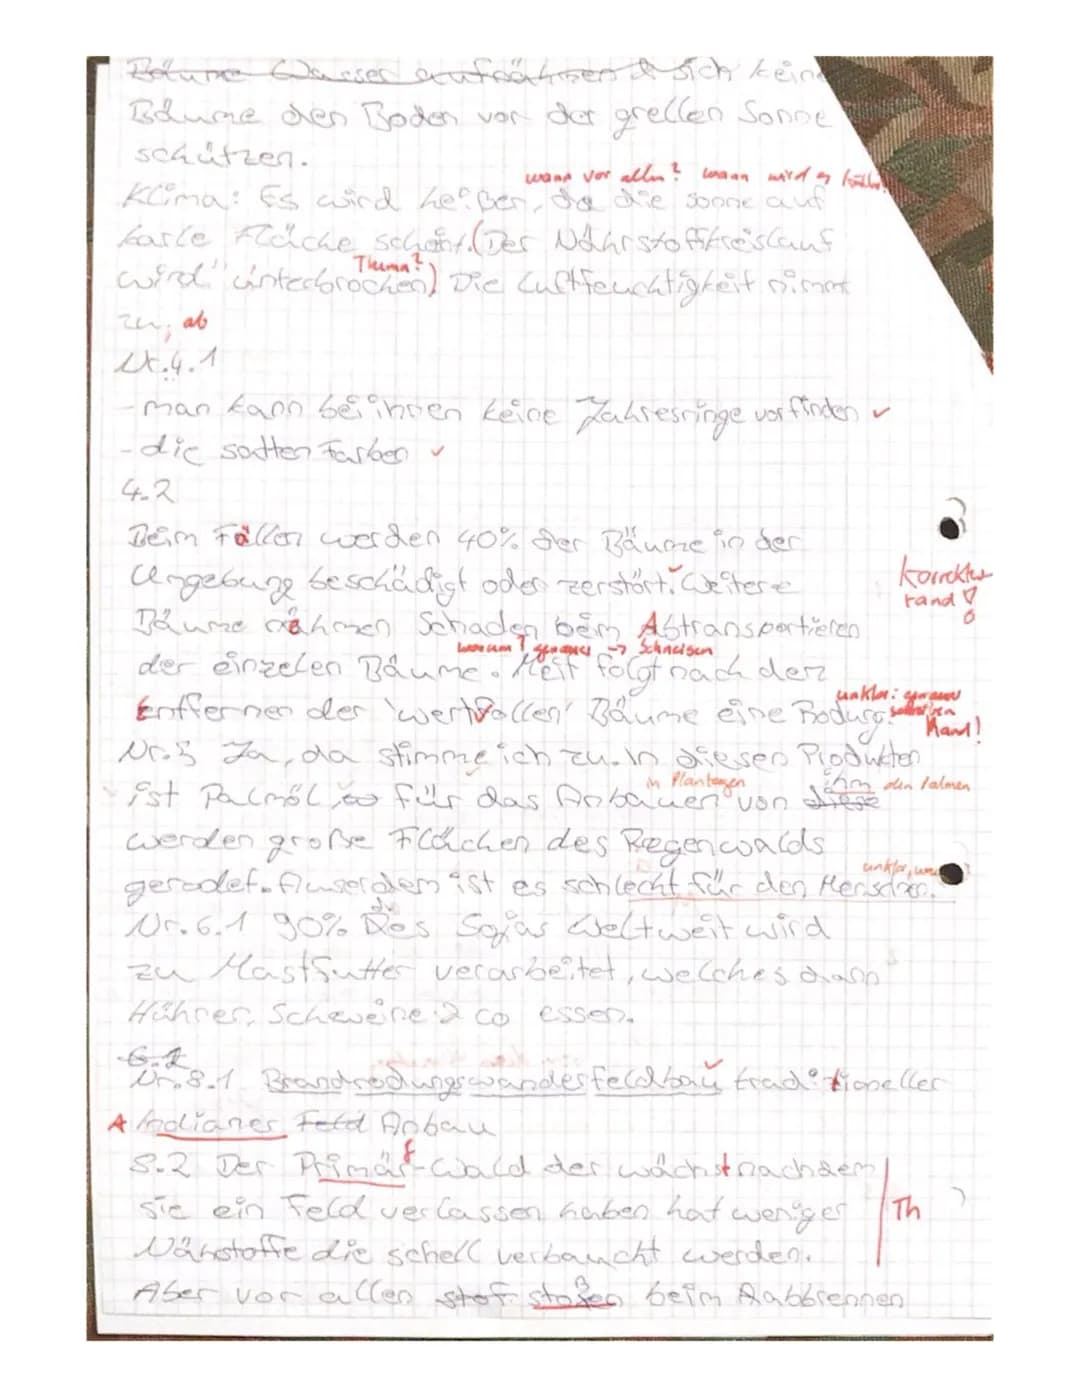 Bäume Wasser aufnähmen & sich keine
Bäume den Boden vor der grellen Sonne
schützen.
wann vor allem? wann wird es
Klima: Es wird heißer, da die sonne auf
karle Fläche scheint. (Der Nährstoffkreislauf
Thema?
wird unterbrochen) Die Luftfeuchtigkeit nimmt
zu, ab
Nr.4.1
- man kann bei ihnen keine Jahresringe vorfinden ✓
- die satten Farben ✓
4.2
Beim Fällen werden 40% der Bäume in der
Umgebung beschädigt oder zerstört. Weitere
Korrektur
rand!
Bäume nähmen Schaden beim Abtransportieren
warum? genauer → Schneisen
der einzelen Bäume. Meist folgt nach den
unklar: genauer
Entfernen der 'wertvollen' Bäume eine Rodung.
Rand!
Nr.5 Ja, da stimme ich zu. In diesen Produkten
in Plantagen den Palmen
ist Palmöl, für das Anbauen von diese
werden große Flächen des Regenwalds
unklar,
gerodet. Auserdem ist es schlecht für den Menschen.
Nr.6.1 90% Des Sojas weltweit wird
zu Mastfutter verarbeitet, welches dann
Hühner, Scheweine & co essen.
6.2
Nr.8.1 Brandrodungswandesfeldbau traditioneller
A Indianer Feld Anbau
8.2 Der Primär-Wald der wächst nachdem
sie ein Feld verlassen haben hat weniger
Th
Nänstoffe die schell verbaucht werden.
Aber vor allen stof stoßen beim Aabbrennen